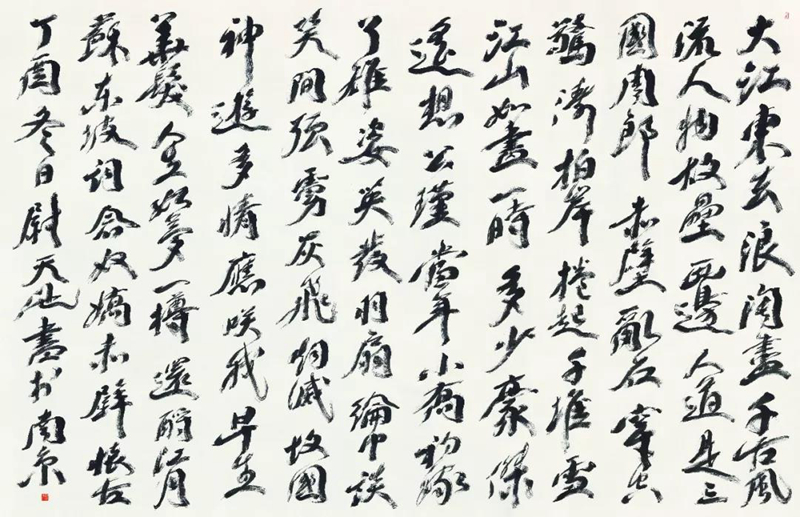 大江東去浪淘盡千古風
流人物故壘西邊人道是三
國周郎赤壁亂石穿空
驚濤拍岸捲起千堆雪
江山如畫一時多少豪傑
遙想公瑾當年小喬初嫁
了雄姿英發羽扇綸巾談
笑間強虜灰飛烟滅故國
神遊多情應咲我早生
華髮人生如夢一樽還酹江月
蘇东坡詞念奴嬌赤壁懷古
丁酉冬日尉天池書於南京